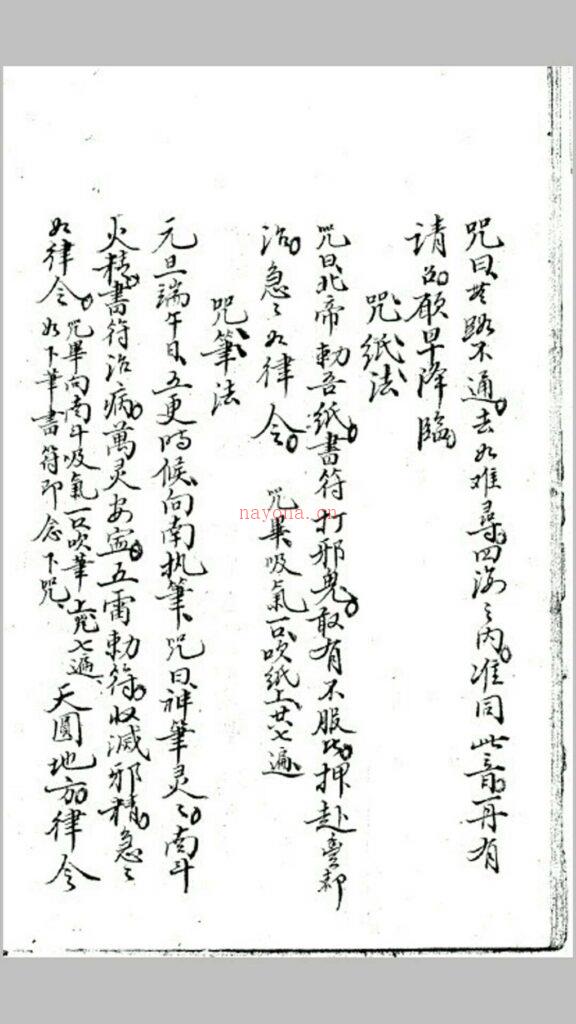 咒曰其路不通去如难尋四海之内准同此音再有
请召願早降臨
咒紙法
咒曰北帝勅吾紙書符打邪鬼敢有不服比押赴酆都
治急々如律令 咒畢吸氣一口吹紙上廿七遍
咒筆法
元旦端午日五更時候向南执筆咒曰神筆灵々南斗
火精書符治病萬灵安寍五雷勅符收滅邪精急々
如律令 咒畢向南斗吸氣一口吹筆上咒七遍 天圓地方律令
如下筆書符即念下咒
nayona.cn